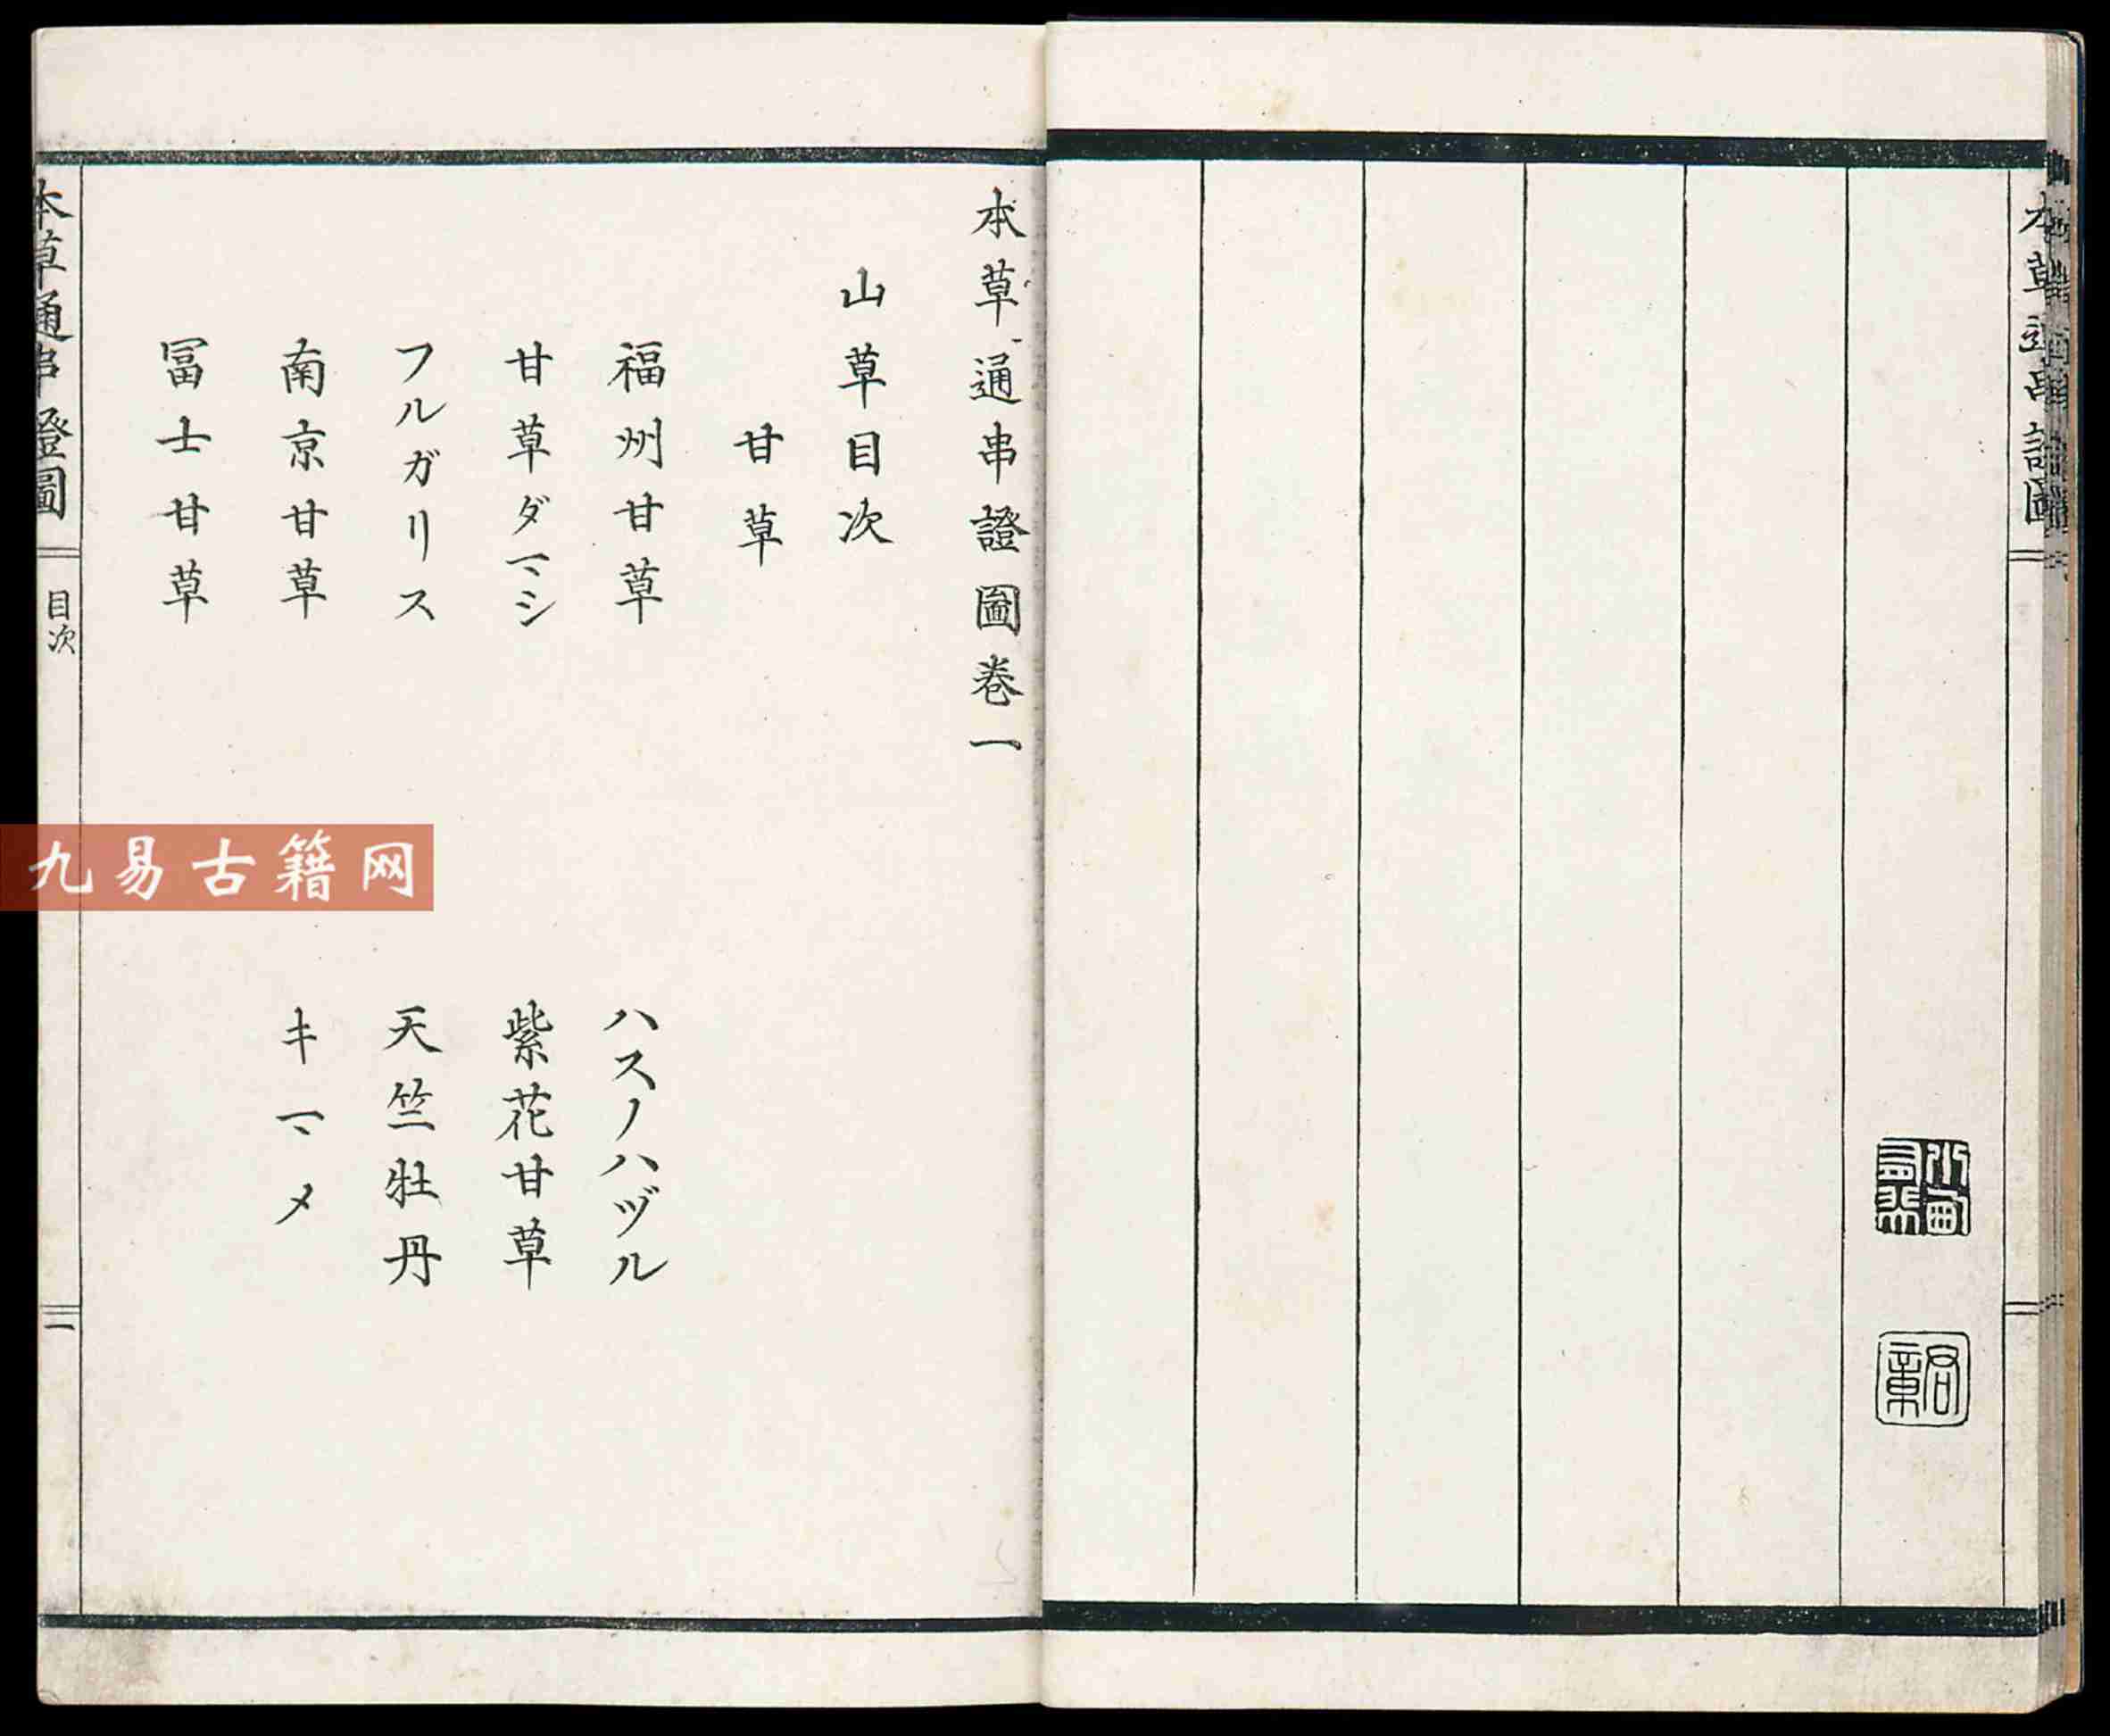 本草通串證圖
本草通串證圖卷一
山草目次
甘草
福州甘草
ハスノハヅル
甘草ダマシ
紫花甘草
フルガリス
天竺牡丹
南京甘草
キマメ
冨士甘草
本草通串證圖
目次
一
九易古籍网